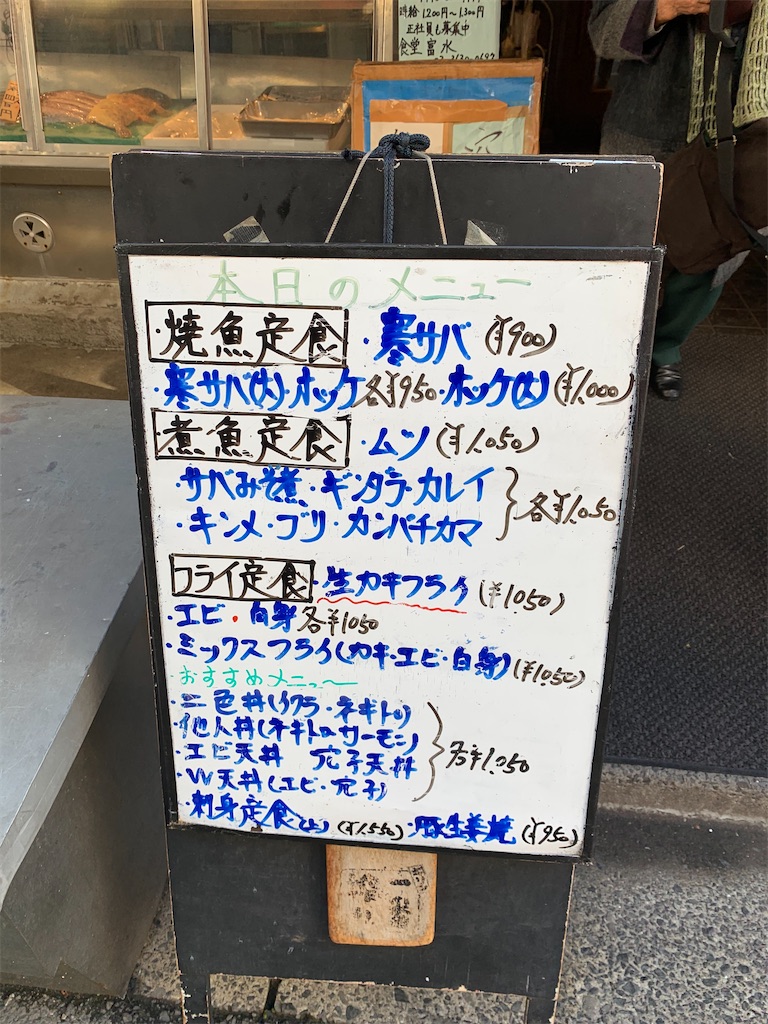 時給1200円〜1,300円
正社員も募集中
食堂 富水
本日のメニュー
焼魚定食 ・寒サバ (¥900)
・寒サバ(大)・ホッケ各¥950・ホッケ(大)(¥1,000)
煮魚定食 ・ムツ (¥1,050)
・サバみそ煮・ギンダラ・カレイ
・キンメ・ブリ・カンパチカマ 各¥1,050
フライ定食・生カキフライ (¥1050)
・エビ・白身各¥1050
・ミックスフライ(カキ・エビ・白身)(¥1,050)
おすすめメニュー
・二色丼(イクラ・ネギトロ)
・他人丼(ネギトロ・サーモン)
・エビ天丼 穴子天丼 各¥1,050
・W天丼(エビ・穴子)
・刺身定食(上)(¥1,550)・豚生姜焼(¥950)